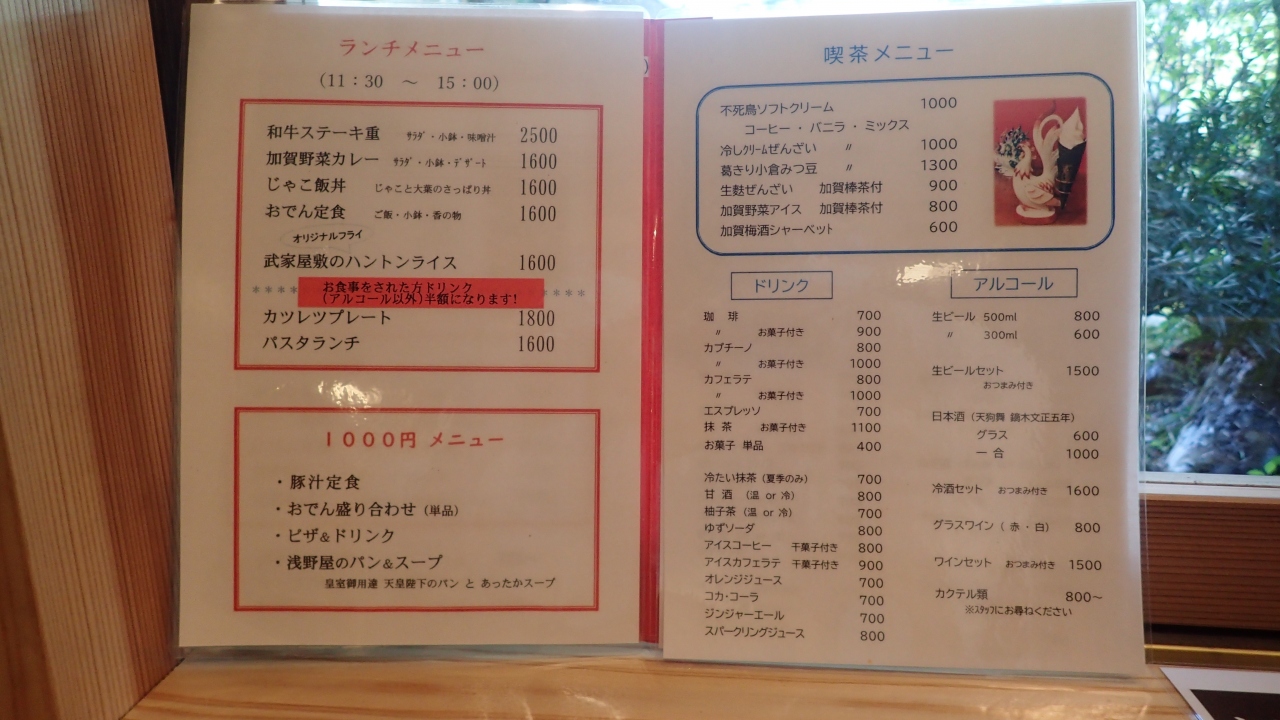 ランチメニュー
（11：30 ～ 15：00）
和牛ステーキ重 ｻﾗﾀﾞ・小鉢・味噌汁 2500
加賀野菜カレー ｻﾗﾀﾞ・小鉢・ﾃﾞｻﾞｰﾄ 1600
じゃこ飯丼 じゃこと大葉のさっぱり丼 1600
おでん定食 ご飯・小鉢・香の物 1600
オリジナルフライ
武家屋敷のハントンライス 1600
お食事をされた方ドリンク
（アルコール以外）半額になります!
カツレツプレート 1800
パスタランチ 1600
１０００円 メニュー
・豚汁定食
・おでん盛り合わせ（単品）
・ピザ&ドリンク
・浅野屋のパン&スープ
皇室御用達 天皇陛下のパン と あったかスープ
喫茶メニュー
不死鳥ソフトクリーム 1000
コーヒー・バニラ・ミックス
冷しｸﾘｰﾑぜんざい 〃 1000
葛きり小倉みつ豆 〃 1300
生麩ぜんざい 加賀棒茶付 900
加賀野菜アイス 加賀棒茶付 800
加賀梅酒シャーベット 600
ドリンク
珈 琲 700
〃 お菓子付き 900
カプチーノ 800
〃 お菓子付き 1000
カフェラテ 800
〃 お菓子付き 1000
エスプレッソ 700
抹 茶 お菓子付き 1100
お菓子 単品 400
冷たい抹茶（夏季のみ） 700
甘 酒 （温 or 冷） 800
柚子茶（温 or 冷） 700
ゆずソーダ 800
アイスコーヒー 干菓子付き 800
アイスカフェラテ 干菓子付き 900
オレンジジュース 700
コカ・コーラ 700
ジンジャーエール 700
スパークリングジュース 800
アルコール
生ビール 500ml 800
〃 300ml 600
生ビールセット 1500
おつまみ付き
日本酒（天狗舞 鏑木文正五年）
グラス 600
一 合 1000
冷酒セット おつまみ付き 1600
グラスワイン（ 赤 ・ 白） 800
ワインセット おつまみ付き 1500
カクテル類 800～
※ｽﾀｯﾌにお尋ねください